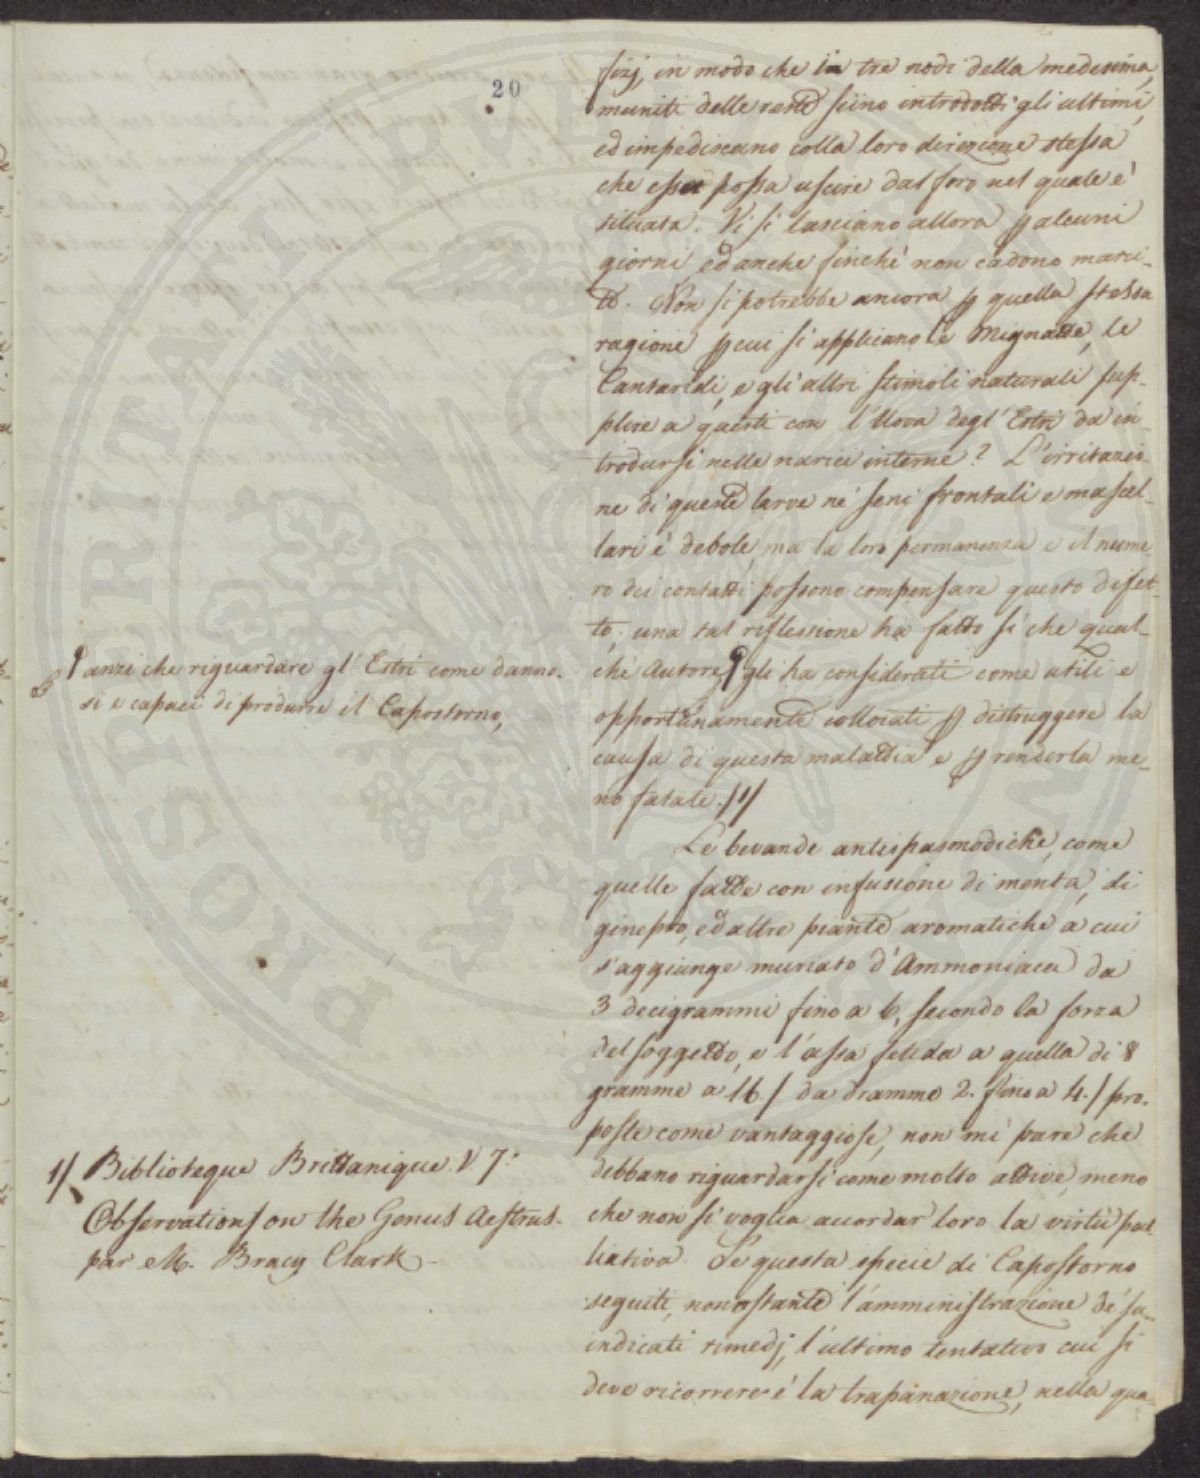 20
fizj, in modo che in tre nodi della medesima,
muniti delle reste siino introdotti gli ultimi,
ed impediscano colla loro direzione stessa
che essa possa uscire dal foro nel quale è
situata. Vi si lasciano allora p alcuni
giorni, ed anche finchè non cadono marci-
te. Non si potrebbe ancora p quella stessa
ragione p cui si applicano le Mignatte, le
Cantaridi, e gli altri stimoli naturali sup-
plire a questi con l'Uova degl'Estri da in-
trodursi nelle narici interne? L'irritazio-
ne di queste larve ne' seni frontali e mascel-
lari è debole, ma la loro permanenza e il nume-
ro dei contatti possono compensare questo difet-
to; una tal riflessione ha fatto sì che qual-
che Autore gli ha considerati come utili e
opportunamente collocati p distruggere la
causa di questa malattia e p renderla me-
no fatale. /1/
Le bevande antispasmodiche, come
quelle fatte con infusione di menta, di
ginepro, ed altre piante aromatiche a cui
s'aggiunge muriato d'Ammoniaca da
3 decigrammi fino a 6, secondo la forza
del soggetto, e l'assa fetida a quella di 8
gramme a 16 / da dramme 2. fino a 4. / pro-
poste come vantaggiose, non mi pare che
debbano riguardarsi come molto attive, meno
che non si voglia accordar loro la virtù pal-
liativa. Se questa specie di Capostorno
seguiti, nonostante l'amministrazione de' su-
indicati rimedj, l'ultimo tentativo cui si
deve ricorrere è la trapanazione, nella qua-
anzi che riguardare gl'Estri come danno-
si e capaci di produrre il Capostorno,
1/ Biblioteque Brittanique V. 7.
Observations on the Genus Aestrus.
par M. Bracy Clark
PROSPERITATI PUBLICAE